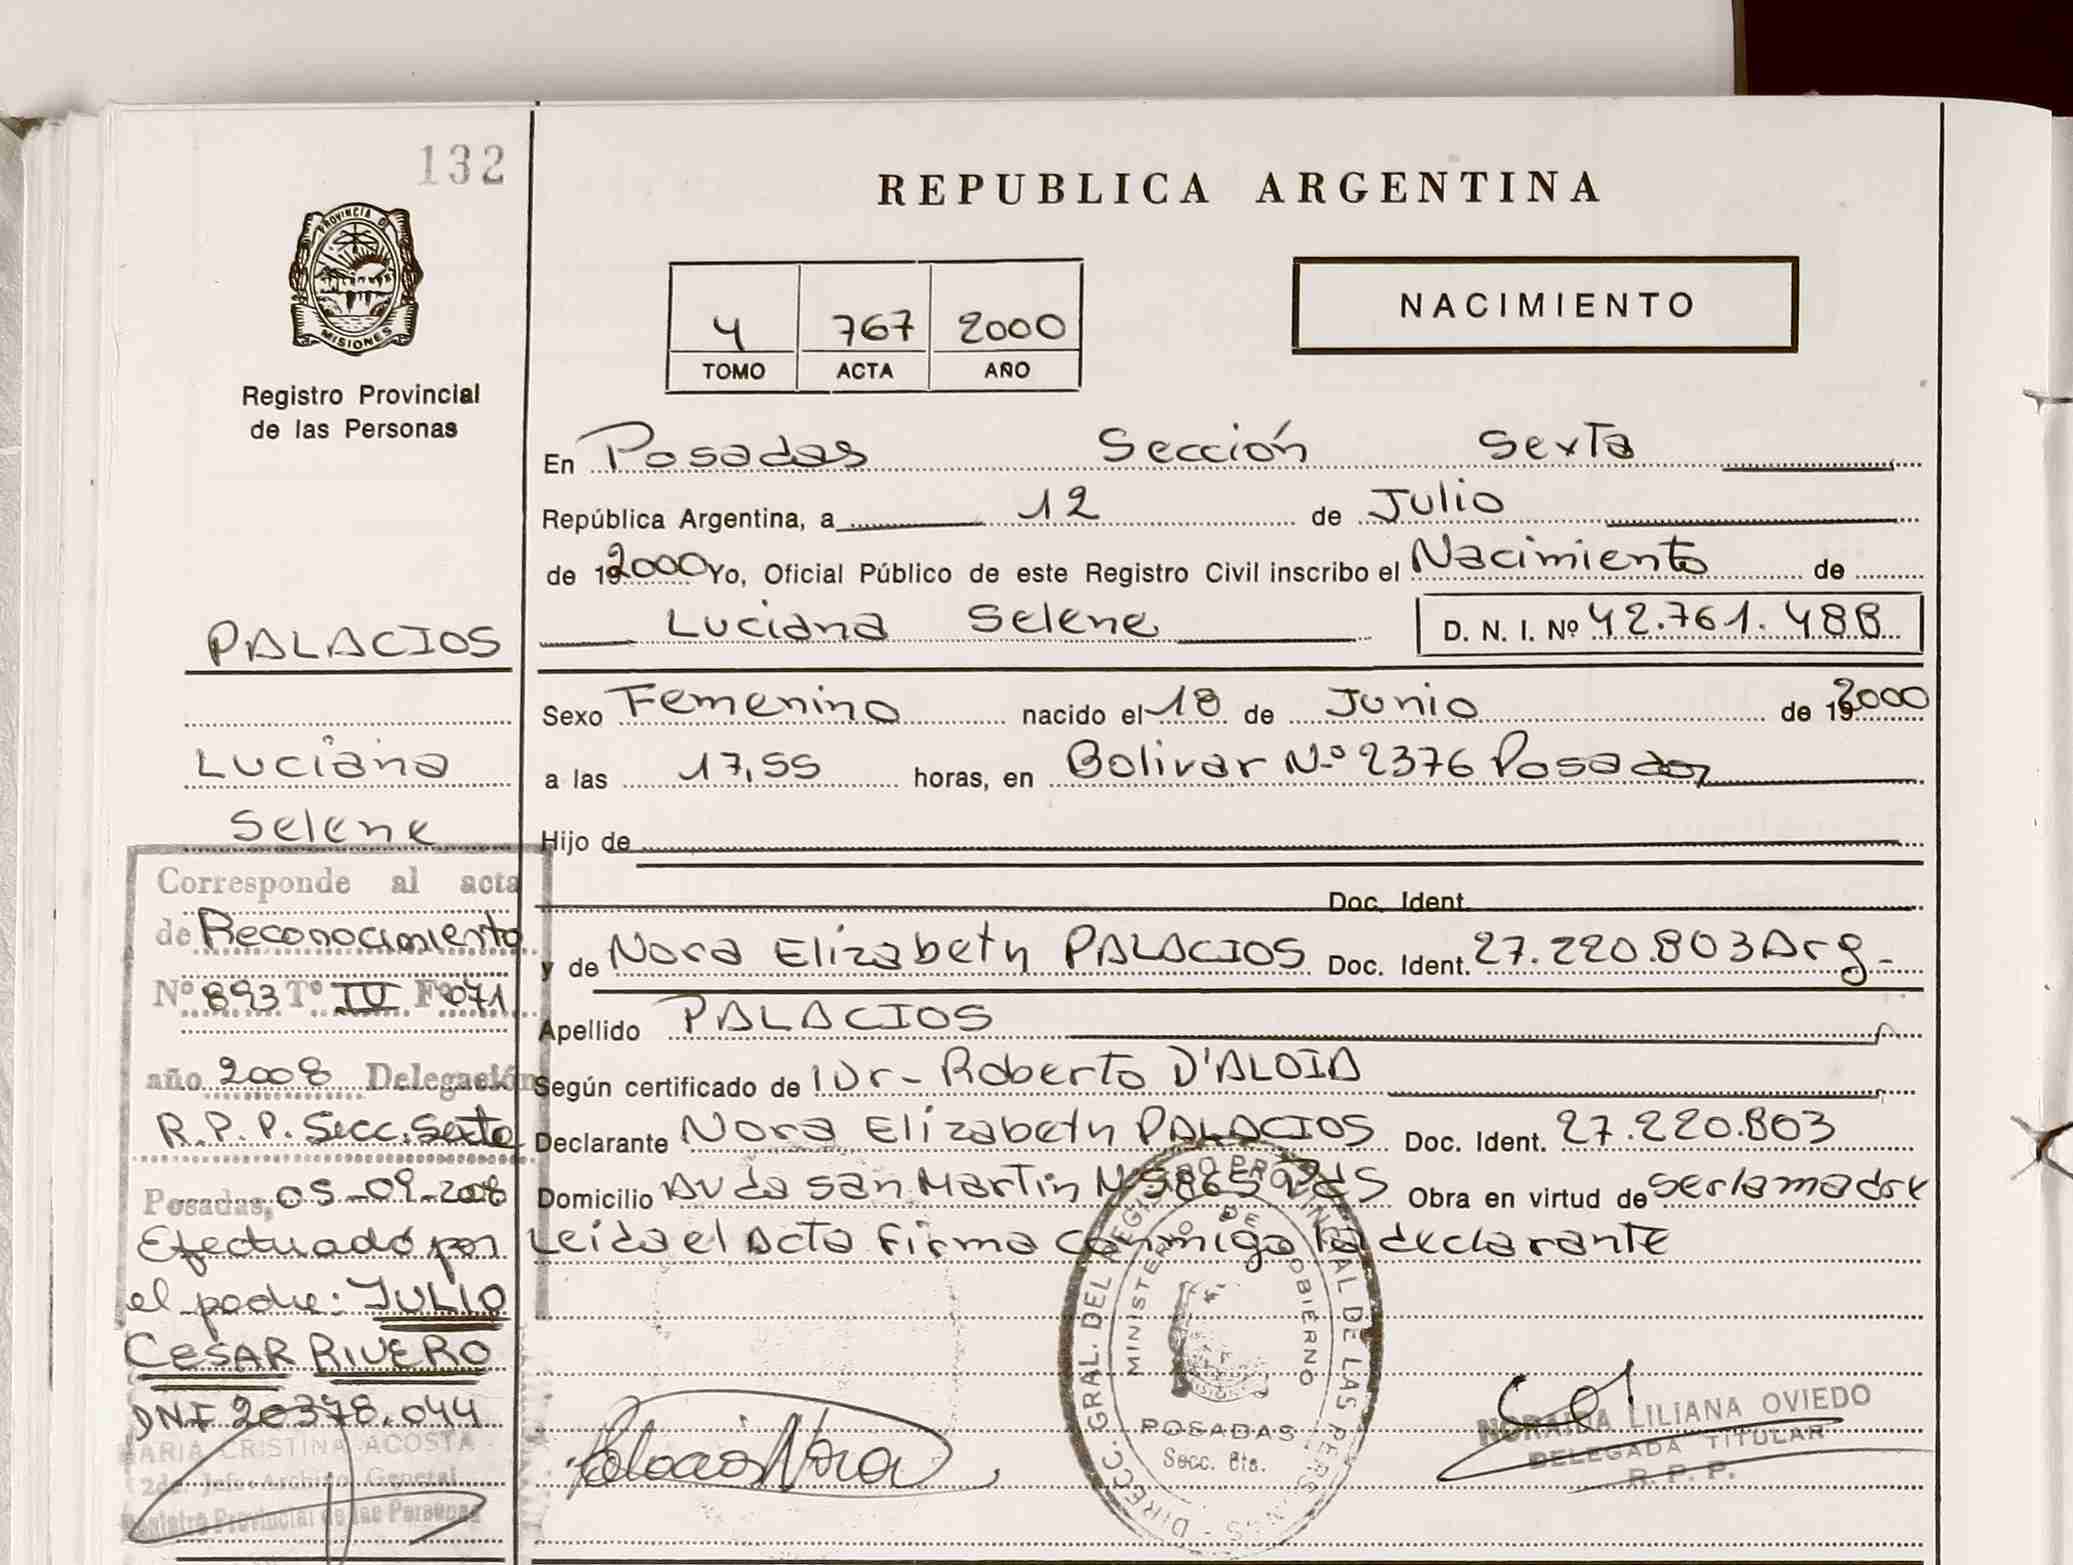 132
REPUBLICA ARGENTINA
PROVINCIA DE
MISIONES
Registro Provincial
de las Personas
4 767 2000
TOMO ACTA AÑO
NACIMIENTO
En Posadas Sección Sexta
República Argentina, a 12 de Julio
de 192000 Yo, Oficial Público de este Registro Civil inscribo el Nacimiento de
Luciana Selene D. N. I. Nº 42.761.488
Sexo Femenino nacido el 18 de Junio de 192000
a las 17,55 horas, en Bolivar Nº 2376 Posadas
Hijo de
Doc. Ident.
y de Nora Elizabeth PALACIOS Doc. Ident. 27.220.803 Arg-
Apellido PALACIOS
Según certificado de Dr- Roberto D'ALOIA
Declarante Nora Elizabeth PALACIOS Doc. Ident. 27.220.803
Domicilio Avda San Martin Nº 5865 Pdas Obra en virtud de ser la madre
Leida el Acta Firma conmigo la declarante
PALACIOS
Luciana
Selene
Corresponde al acta
de Reconocimiento
Nº 893 Tº IV Fº 071
año 2008 Delegación
R.P.P. Secc. Sexta
Posadas, 05-09-2008
Efectuado por
el padre: JULIO
CESAR RIVERO
DNI 20378.044
MARIA CRISTINA ACOSTA
2da Jefe Archivo General
Registro Provincial de las Personas
Palacios Nora
DIRECC. GRAL. DEL REGISTRO PROVINCIAL DE LAS PERSONAS
MINISTERIO DE GOBIERNO
POSADAS
Secc. 6ta.
NORAIDA LILIANA OVIEDO
DELEGADA TITULAR
R. P. P.